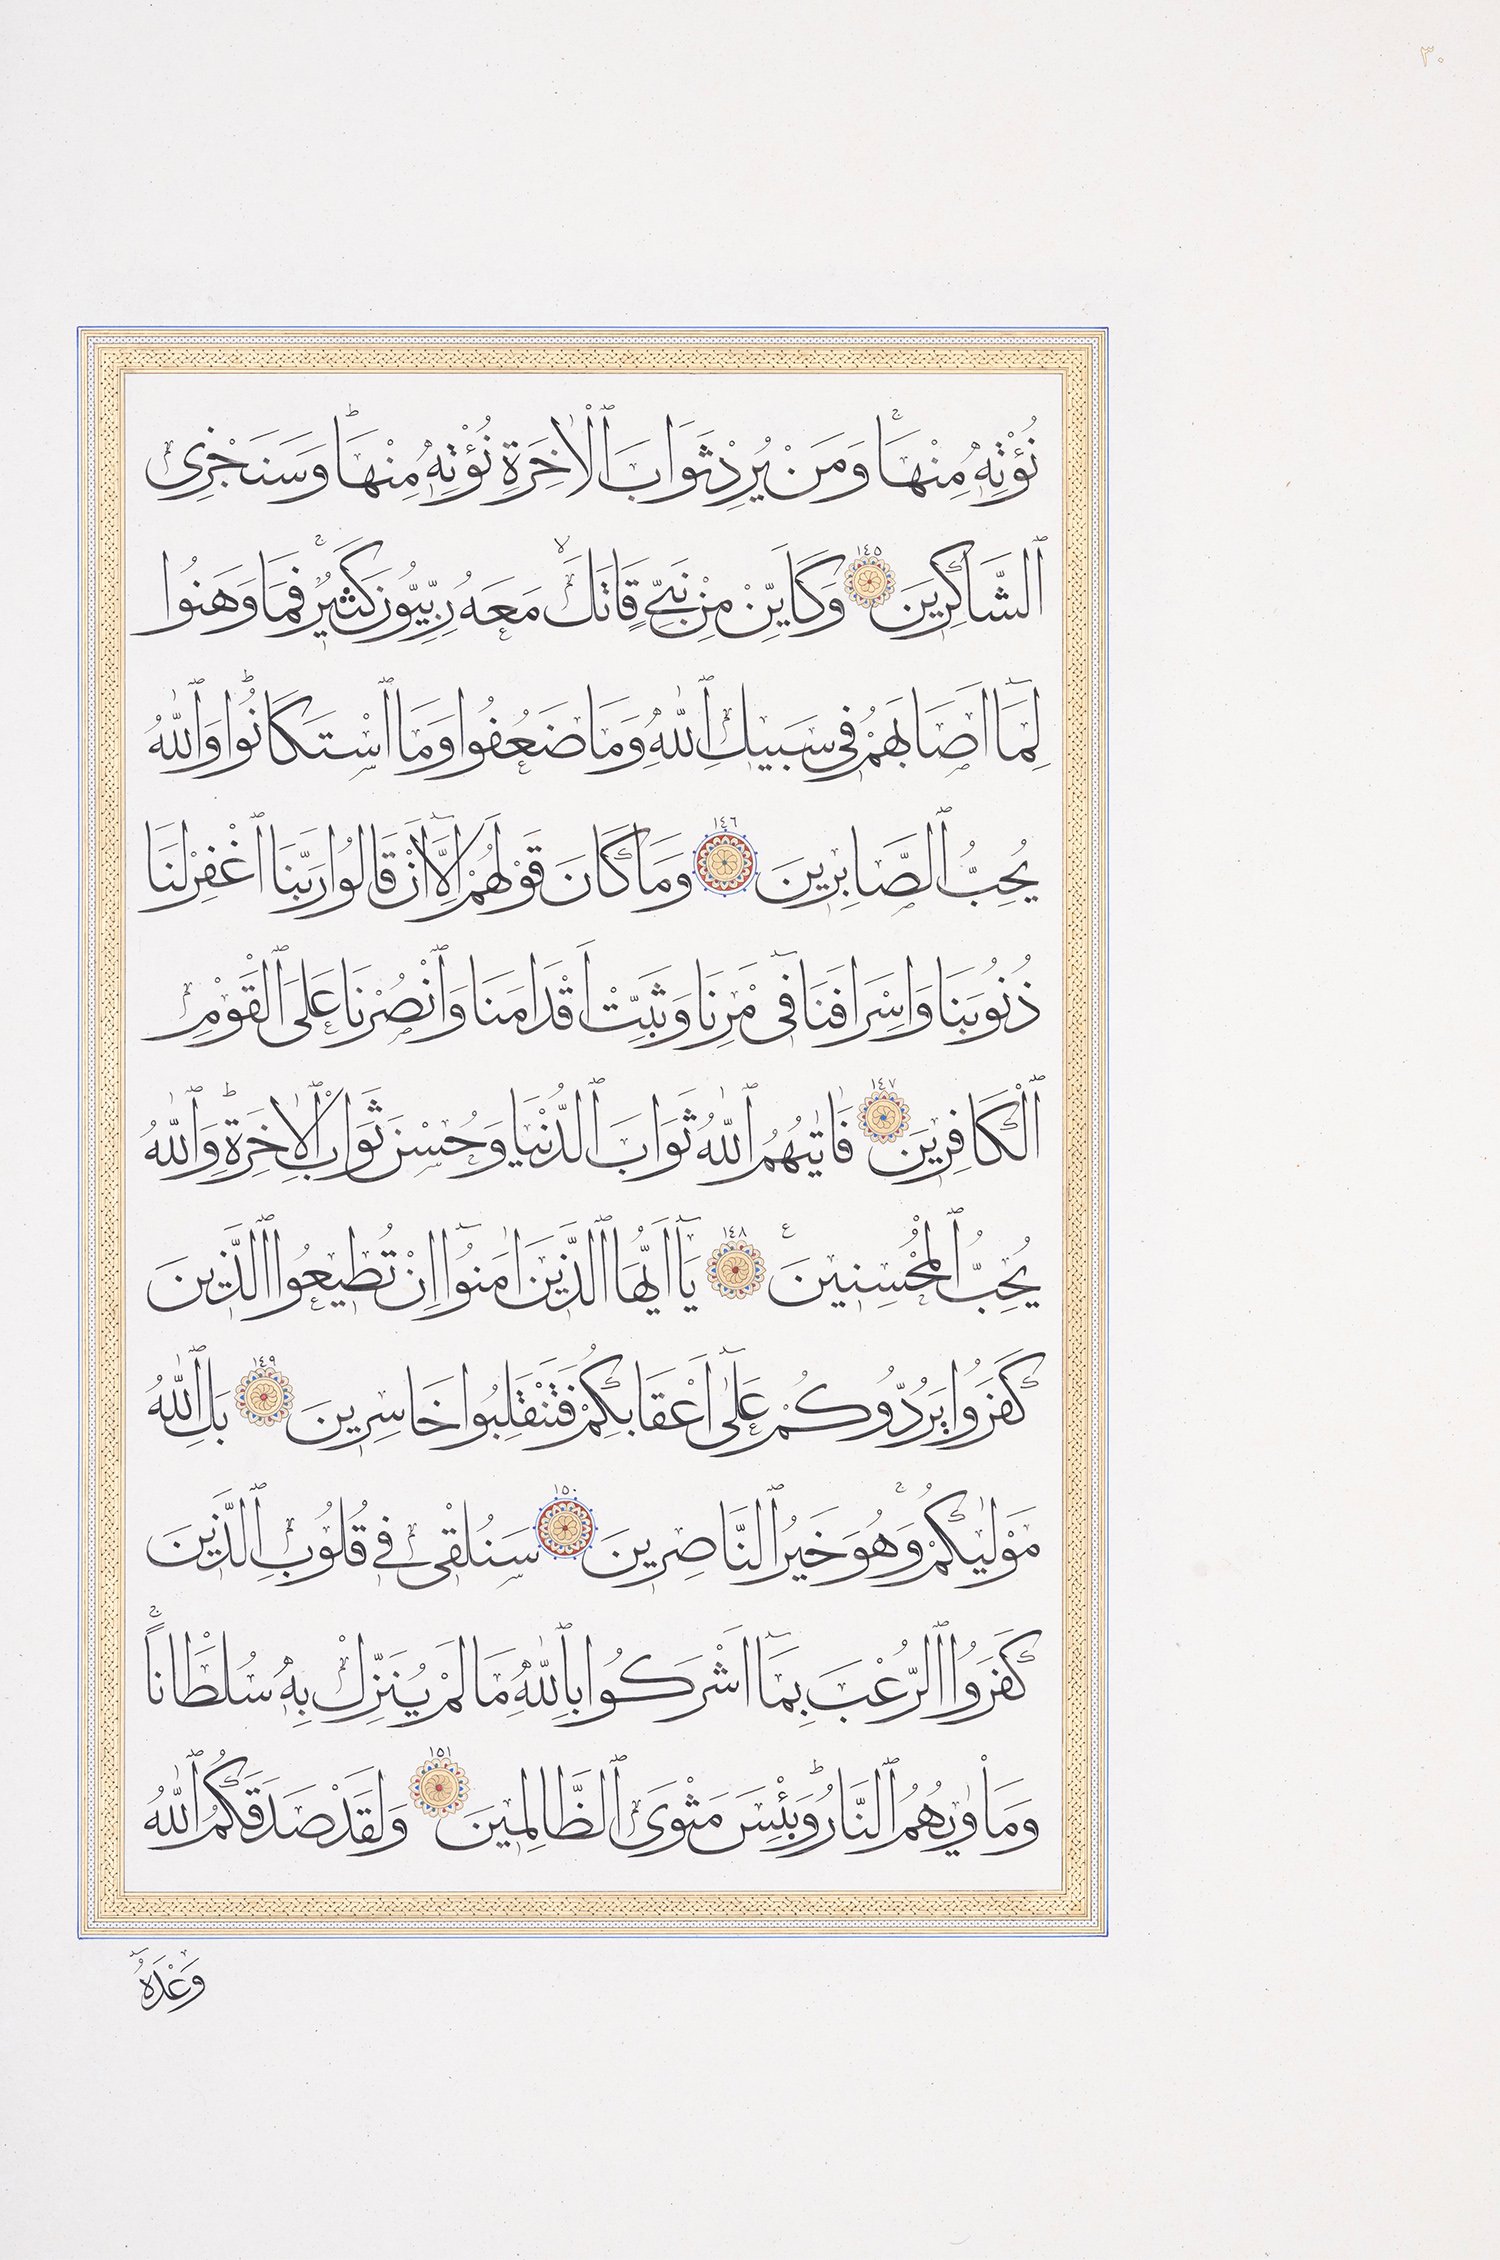 ٣٠
نُؤْتِهٖ مِنْهَاۚ وَمَنْ يُرِدْ ثَوَابَ ٱلْاٰخِرَةِ نُؤْتِهٖ مِنْهَاۜ وَسَنَجْزِي
ٱلشَّاكِرِينَ ١٤٥ وَكَاَيِّنْ مِنْ نَبِيٍّ قَاتَلَۙ مَعَهُ رِبِّيُّونَ كَثِيرٌۚ فَمَا وَهَنُوا
لِمَٓا اَصَابَهُمْ فِي سَبِيلِ ٱللّٰهِ وَمَا ضَعُفُوا وَمَا ٱسْتَكَانُواۜ وَٱللّٰهُ
يُحِبُّ ٱلصَّابِرِينَ ١٤٦ وَمَا كَانَ قَوْلَهُمْ اِلَّٓا اَنْ قَالُوا رَبَّنَا ٱغْفِرْ لَنَا
ذُنُوبَنَا وَاِسْرَافَنَا فِٓي مْرِنَا وَثَبِّتْ اَقْدَامَنَا وَٱنْصُرْنَا عَلَى ٱلْقَوْمِ
ٱلْكَافِرِينَ ١٤٧ فَاٰتٰيهُمُ ٱللّٰهُ ثَوَابَ ٱلدُّنْيَا وَحُسْنَ ثَوَابِ ٱلْاٰخِرَةِۜ وَٱللّٰهُ
يُحِبُّ ٱلْمُحْسِنِينَۚ ١٤٨ يَٓا اَيُّهَا ٱلَّذِينَ اٰمَنُٓوا اِنْ تُطِيعُوا ٱلَّذِينَ
كَفَرُوا يَرُدُّوكُمْ عَلٰٓى اَعْقَابِكُمْ فَتَنْقَلِبُوا خَاسِرِينَ ١٤٩ بَلِ ٱللّٰهُ
مَوْلٰيكُمْۚ وَهُوَ خَيْرُ ٱلنَّاصِرِينَ ١٥٠ سَنُلْقِي فِي قُلُوبِ ٱلَّذِينَ
كَفَرُوا ٱلرُّعْبَ بِمَٓا اَشْرَكُوا بِٱللّٰهِ مَا لَمْ يُنَزِّلْ بِهٖ سُلْطَانًاۚ
وَمَأْوٰيهُمُ ٱلنَّارُۜ وَبِئْسَ مَثْوَى ٱلظَّالِمِينَ ١٥١ وَلَقَدْ صَدَقَكُمُ ٱللّٰهُ
وَعْدَهُٓ